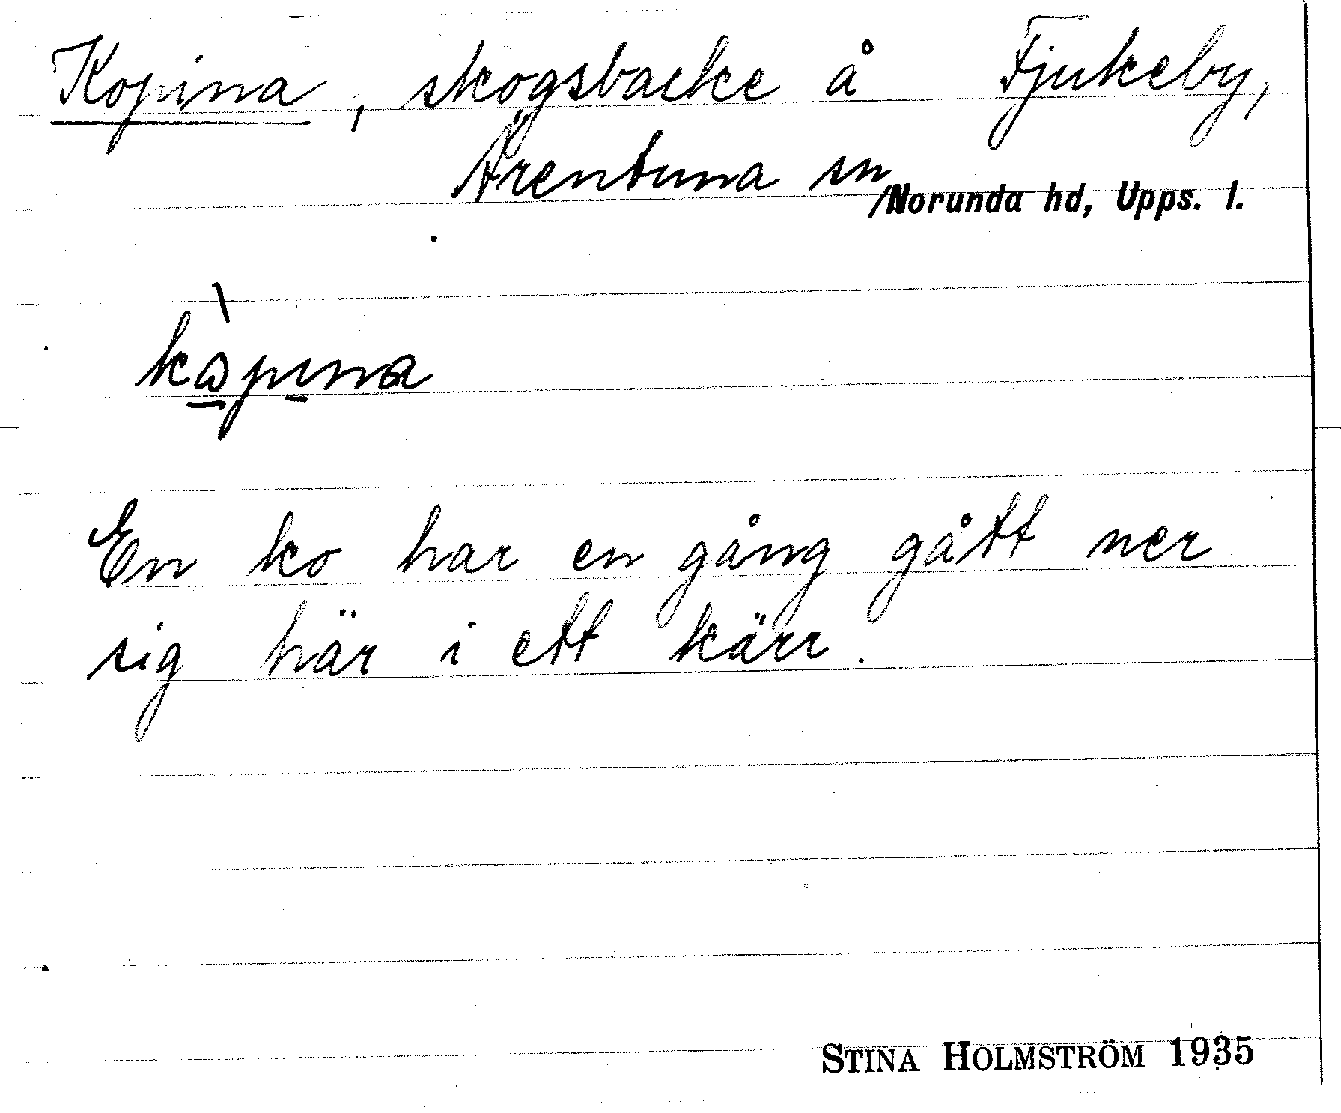 Kopina, skogsbacke å Fjukeby,
Ärentuna sn
/Norunda hd, Upps. l.
kòpina
En ko har en gång gått ner
sig här i ett kärr.
STINA HOLMSTRÖM 1935